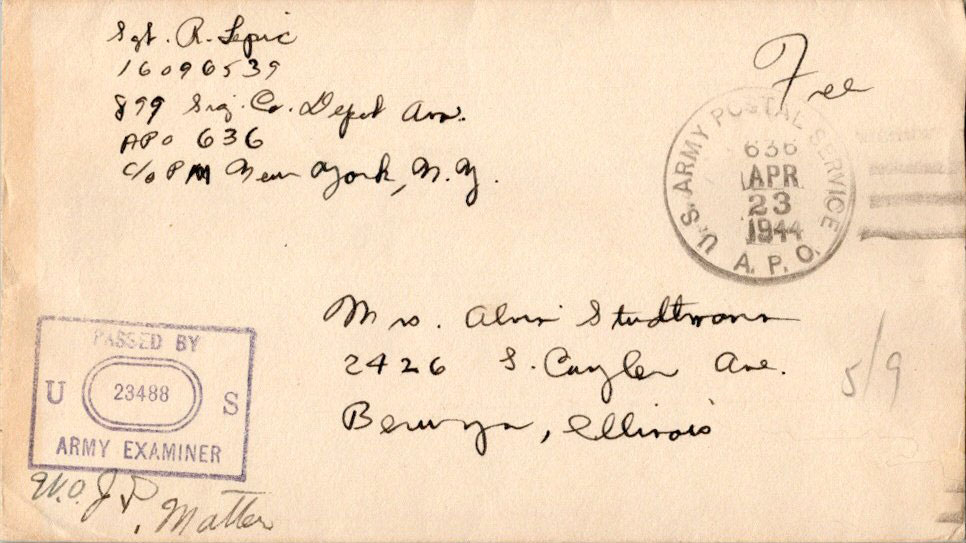 Sgt. R. Lepic
16096539
899 Sig. Co. Depot Avn.
APO 636
c/o PM New York, N.Y.
Free
U.S. ARMY POSTAL SERVICE
636
APR
23
1944
A.P.O.
Mrs. Alvin Studtmann
2426 S. Cuyler Ave.
Berwyn, Illinois
5/9
PASSED BY
U 23488 S
ARMY EXAMINER
W.O. J.P. Matter